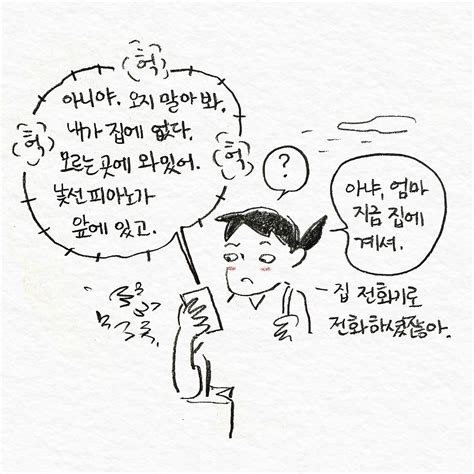 헉
아니야. 오지 말아 봐.
내가 집에 없다.
헉
모르는 곳에 와 있어.
헉
낯선 피아노가
앞에 있고.
?
아냐, 엄마
지금 집에
계셔.
- 집 전화기로
전화하셨잖아.